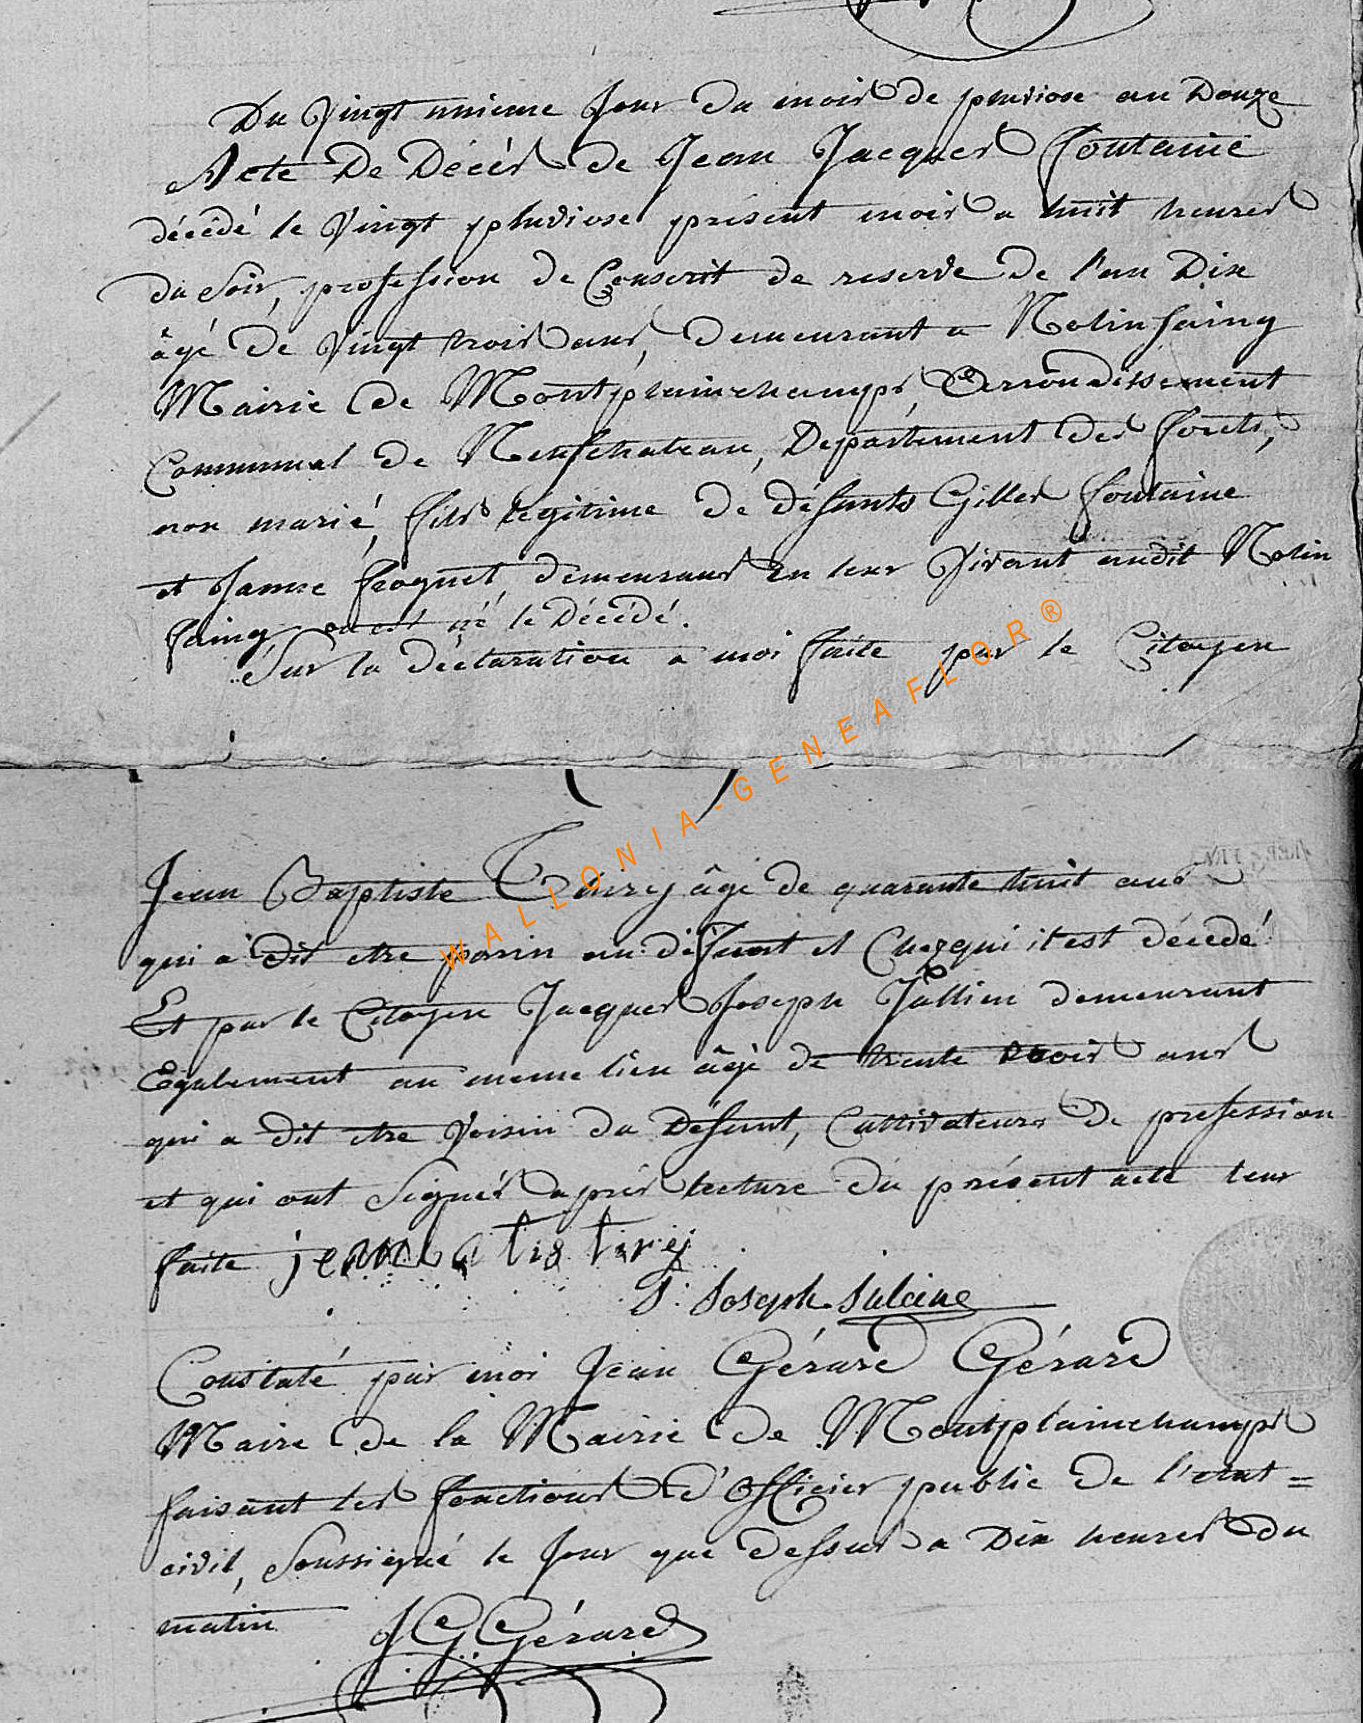 Du Vingt unieme Jour du mois de pluviose an Douze
Acte De Décès de Jean Jacques fontaine
décédé le Vingt pluviose présent mois a huit heures
du Soir, profession de Conscrit de reserve de l'an Dix
âgé de Vingt trois ans, demeurant a Nolinfaing
Mairie de Montplainchamps, Arrondissement
Communal de Neufchateau, Département des forets,
non marié, fils légitime de défunts Gilles fontaine
et Janne feoguet, demeurans en leur Vivant audit Nolin
faing ou est né le Décédé.
Sur la déclaration a moi faite par le Citoyen
Jean Baptiste âgé de quarante huit ans
qui a dit etre parin au défunt et Chez qui il est décedé
Et par le Citoyen Jacques Joseph demeurant
Egalement au meme lieu âgé de trente trois ans
qui a dit etre Voisin du Défunt, Cultivateurs de profession
et qui ont Signés après lecture du présent acte leur
faite jean batis tirej
J. Joseph
Constaté par moi Jean Gérard Gérard
Maire de la Mairie de Montplainchamps
faisant les fonctions d'Officier public de l'etat=
civil, Soussigné le Jour que dessus a Dix heures du
matin J G Gérard
WALLONIA-GENEAFLOR®